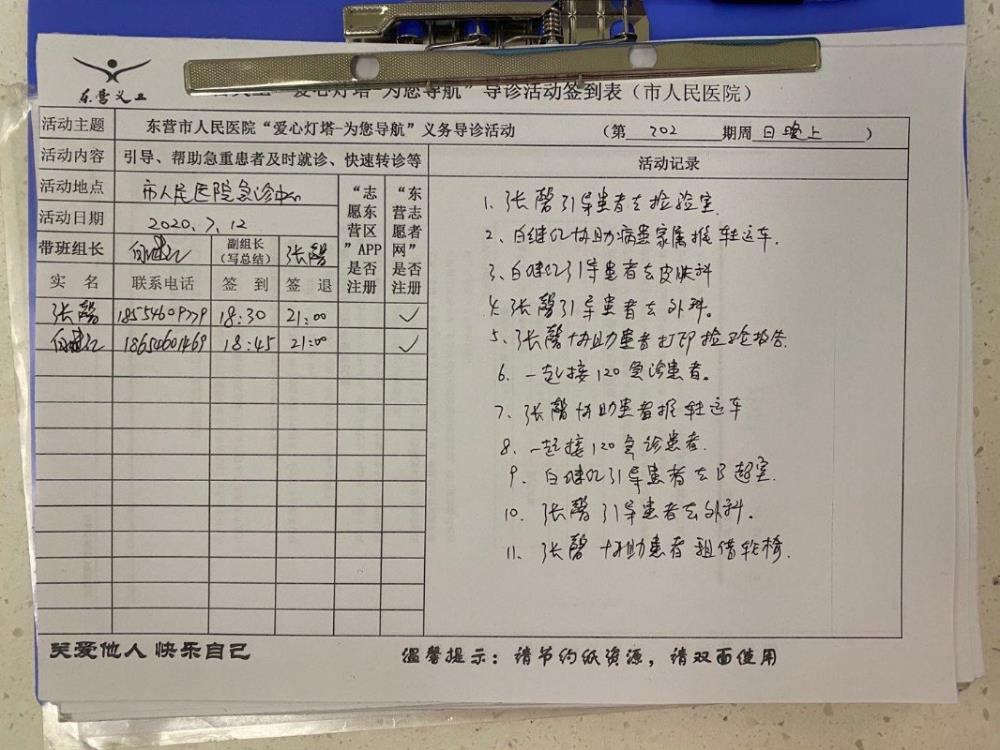 东营义工
“爱心灯塔-为您导航”导诊活动签到表（市人民医院）
活动主题 东营市人民医院“爱心灯塔-为您导航”义务导诊活动 （第 202 期周日晚上）
活动内容 引导、帮助急重患者及时就诊、快速转诊等 活动记录
活动地点 市人民医院急诊中心
活动日期 2020.7.12
带班组长 副组长（写总结） 张馨
“志愿东营区”APP是否注册
“东营志愿者网”是否注册
实名 联系电话 签到 签退
张馨 18554609779 18:30 21:00 ✓
18650601469 18:45 21:00 ✓
1、张馨引导患者去检验室.
2、白继红协助病患家属推转运车.
3、白继红引导患者去皮肤科
4、张馨引导患者去外科。
5、张馨协助患者打印检验报告.
6、一起接120急诊患者。
7、张馨协助患者推转运车
8、一起接120急诊患者.
9、白继红引导患者去B超室.
10、张馨引导患者去外科.
11、张馨协助患者租借轮椅.
关爱他人 快乐自己
温馨提示：请节约纸资源，请双面使用